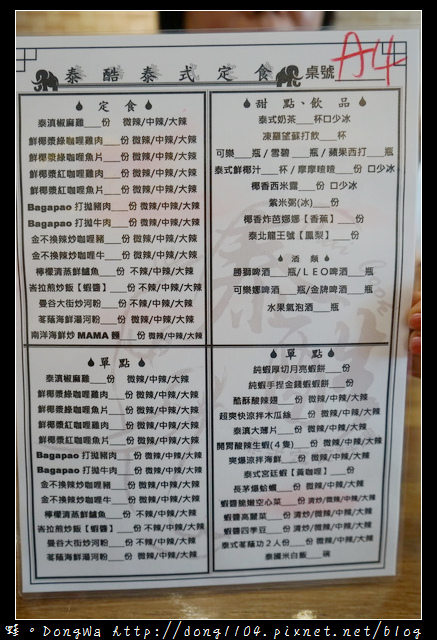 泰酷泰式定食 桌號 A14
定食
泰滇椒麻雞__份 微辣/中辣/大辣
鮮椰漿綠咖哩雞肉__份 微辣/中辣/大辣
鮮椰漿綠咖哩魚片__份 微辣/中辣/大辣
鮮椰漿紅咖哩雞肉__份 微辣/中辣/大辣
鮮椰漿紅咖哩魚片__份 微辣/中辣/大辣
Bagapao 打拋豬肉__份 微辣/中辣/大辣
Bagapao 打拋牛肉__份 微辣/中辣/大辣
金不換辣炒咖哩豬__份 微辣/中辣/大辣
金不換辣炒咖哩牛__份 微辣/中辣/大辣
檸檬清蒸鮮鱸魚__份 不辣/中辣/大辣
峇拉煎炒飯【蝦醬】__份 不辣/中辣/大辣
曼谷大街炒河粉__份 不辣/中辣/大辣
荖蔭海鮮湯河粉__份 微辣/中辣/大辣
南洋海鮮炒 MAMA 麵__份 微辣/中辣/大辣
甜點、飲品
泰式奶茶__杯口少冰
凍羅望蘇打飲__杯
可樂__瓶/雪碧__瓶/蘋果西打__瓶
泰式鮮椰汁__杯/摩摩喳喳__份 口少冰
椰香西米露__份 口少冰
紫米粥(冰)__份
椰香炸芭娜娜【香蕉】__份
泰北龍王號【鳳梨】__份
酒類
勝獅啤酒__瓶/LEO啤酒__瓶
可樂娜啤酒__瓶/金牌啤酒__瓶
水果氣泡酒__瓶
單點
泰滇椒麻雞__份 微辣/中辣/大辣
鮮椰漿綠咖哩雞肉__份 微辣/中辣/大辣
鮮椰漿綠咖哩魚片__份 微辣/中辣/大辣
鮮椰漿紅咖哩雞肉__份 微辣/中辣/大辣
鮮椰漿紅咖哩魚片__份 微辣/中辣/大辣
Bagapao 打拋豬肉__份 微辣/中辣/大辣
Bagapao 打拋牛肉__份 微辣/中辣/大辣
金不換辣炒咖哩豬__份 微辣/中辣/大辣
金不換辣炒咖哩牛__份 微辣/中辣/大辣
檸檬清蒸鮮鱸魚__份 不辣/中辣/大辣
峇拉煎炒飯【蝦醬】__份 不辣/中辣/大辣
曼谷大街炒河粉__份 不辣/中辣/大辣
荖蔭海鮮湯河粉__份 微辣/中辣/大辣
單點
純蝦厚切月亮蝦餅__份
純蝦手捏金錢蝦蝦餅__份
酷酥酸辣翅__份 微辣/中辣/大辣
超爽快涼拌木瓜絲__份 微辣/中辣/大辣
泰滇大薄片__份 微辣/中辣/大辣
開胃酸辣生蝦(4隻)__份 微辣/中辣/大辣
爽爆涼拌海鮮__份 微辣/中辣/大辣
泰式宮廷蝦【黃咖哩】__份
長茅爆蛤蠣__份 微辣/中辣/大辣
蝦醬脆嫩空心菜__份 清炒/微辣/中辣/大辣
蝦醬高麗菜__份 清炒/微辣/中辣/大辣
蝦醬四季豆__份 清炒/微辣/中辣/大辣
泰式荖蔭功2人份__份 微辣/中辣/大辣
泰國米白飯__碗
蛙。DongWa Http://dong1104.pixnet.net/blog